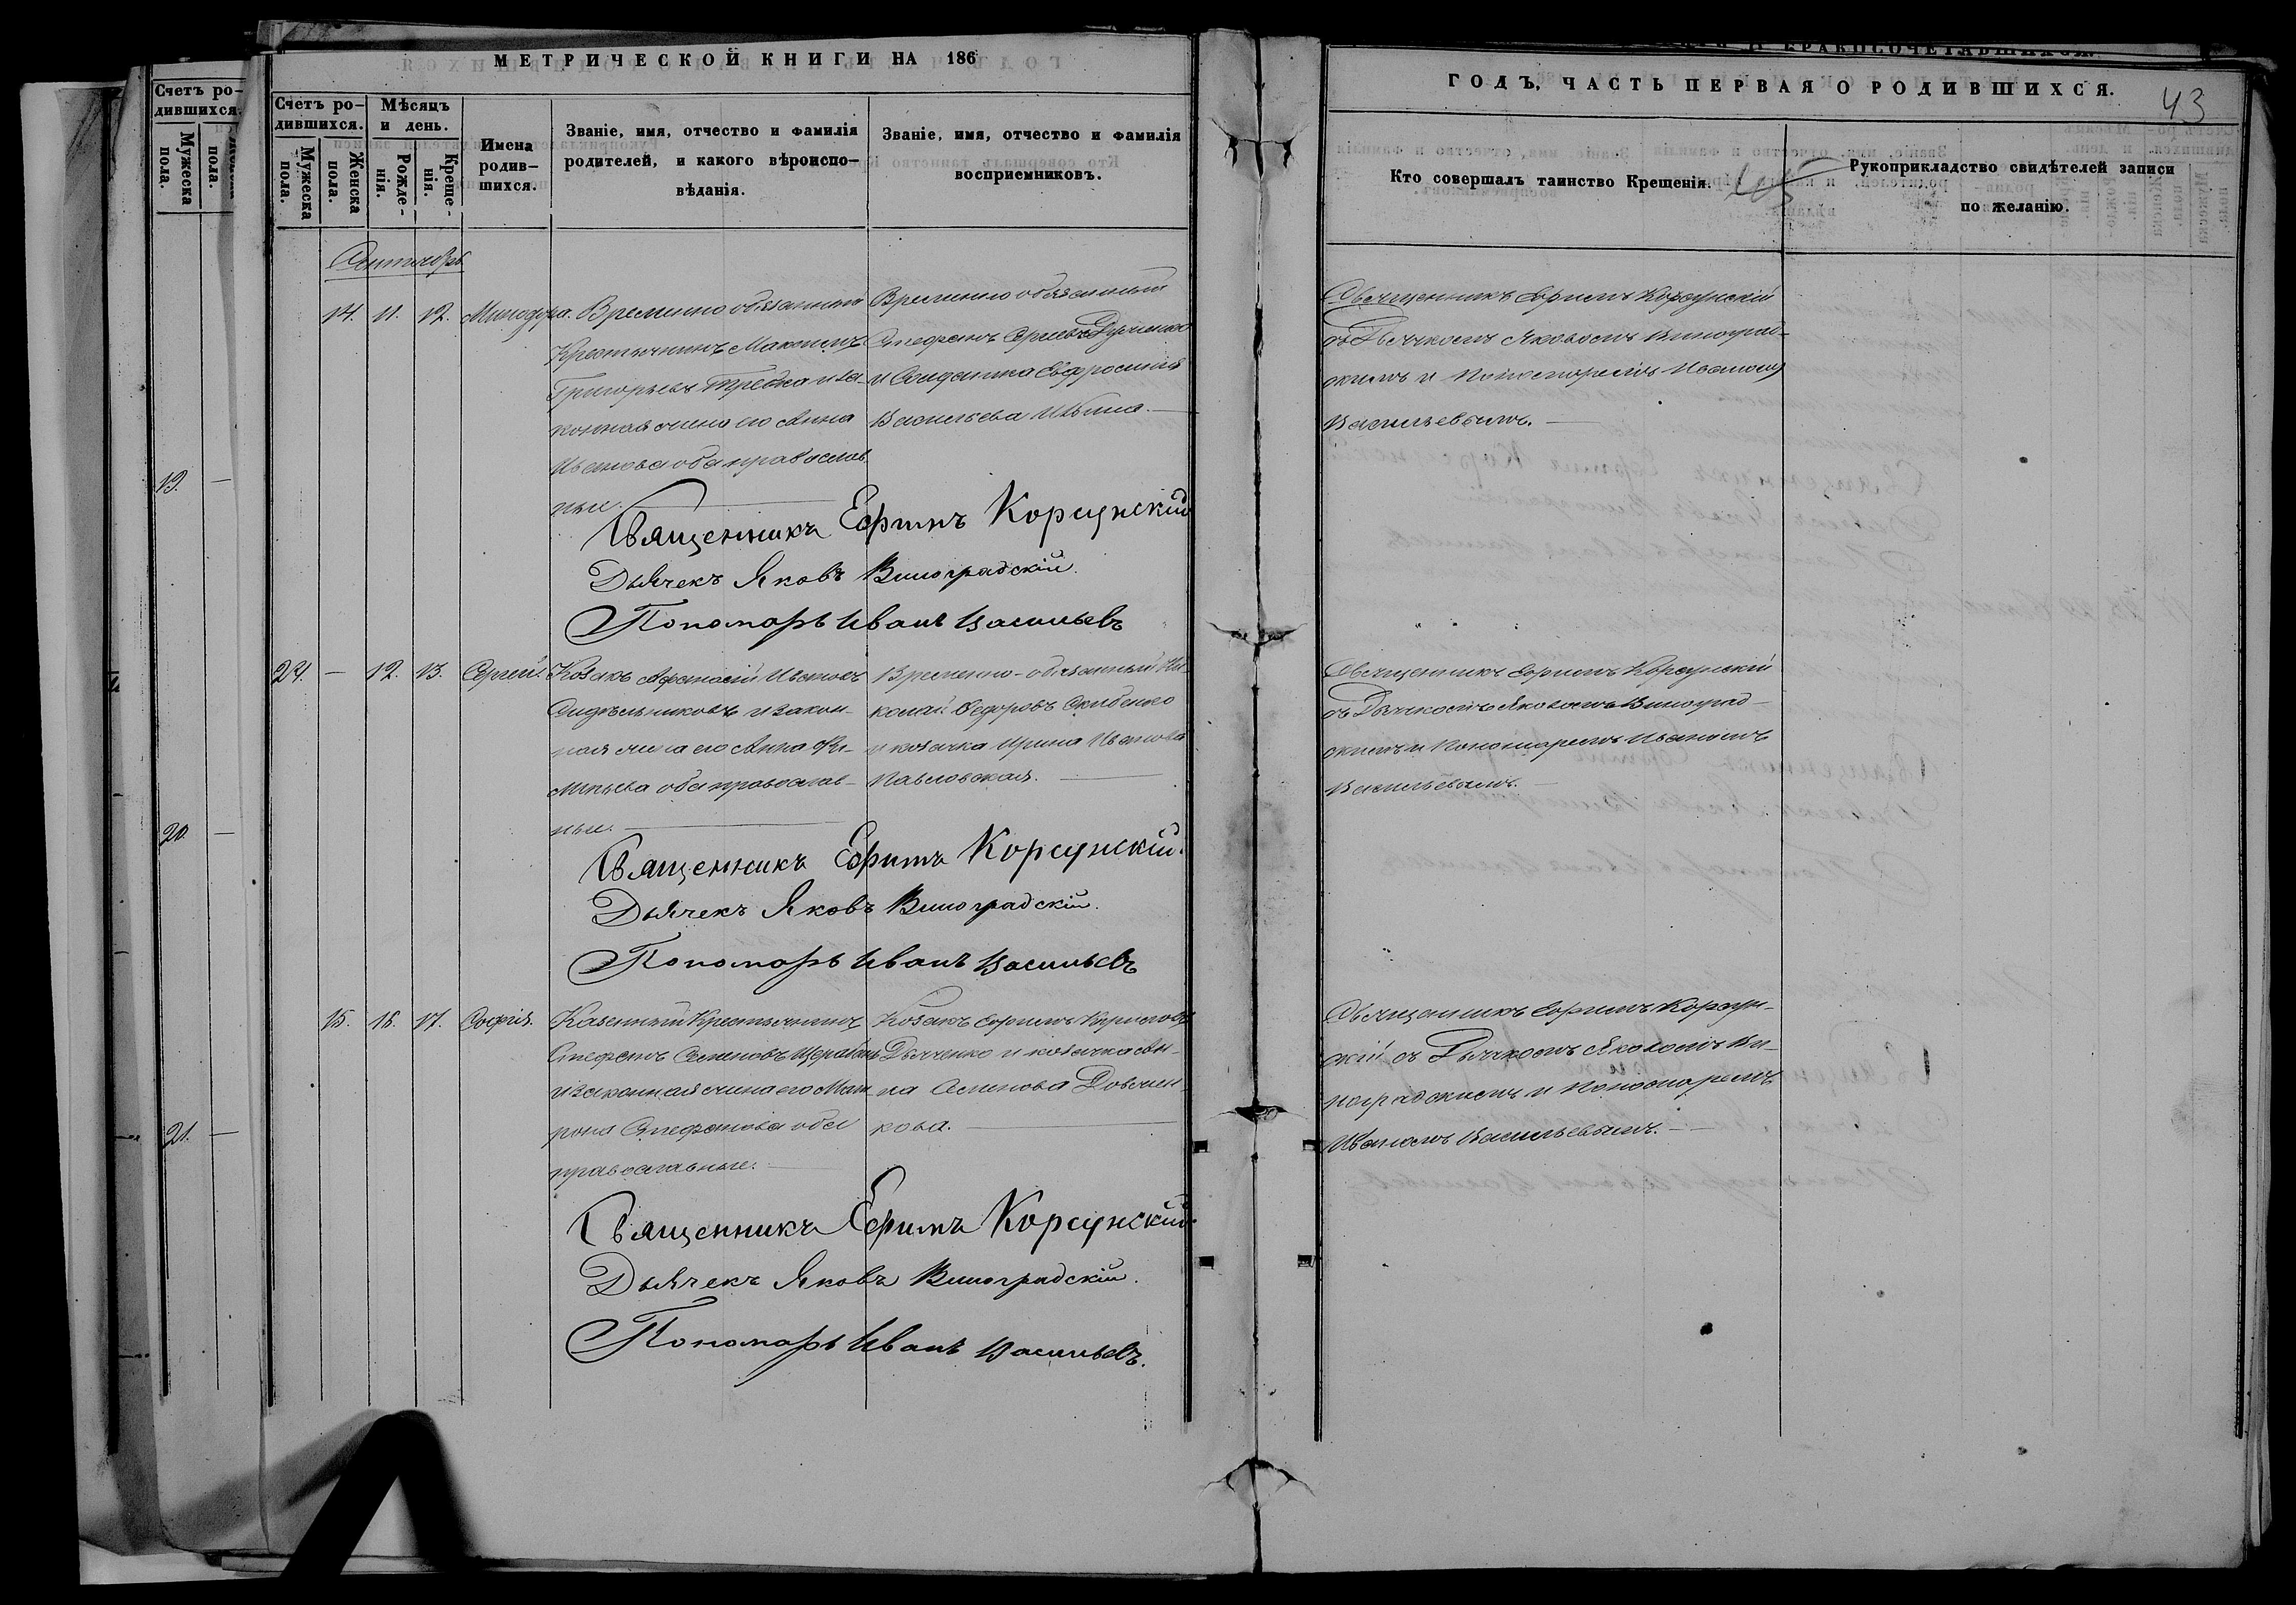 МЕТРИЧЕСКОЙ КНИГИ НА 186
ГОДЪ, ЧАСТЬ ПЕРВАЯ О РОДИВШИХСЯ.
43
Счетъ ро-
дившихся.
Мужеска
пола.
пола.
19. —
20. —
21. —
Счетъ ро-
дившихся.
Мужеска
пола.
Женска
пола.
Мѣсяцъ
и день.
Рожде-
нія.
Креще-
нія.
Имена
родив-
шихся.
Званіе, имя, отчество и фамилія
родителей, и какого вѣроиспо-
вѣданія.
Званіе, имя, отчество и фамилія
восприемниковъ.
Кто совершалъ таинство Крещенія.
Рукоприкладство свидѣтелей записи
по желанію.
Сентябрь
14. 11. 12. Минодора.
Временно обязанный
Крестьянинъ Максимъ
Григорьевъ и за-
конная жена его Анна
Иванова оба православ
ные.
Временно обязанный
Стефанъ Сергѣевъ
и Солдатка Евфросинія
Васильева Ильина. —
Священникъ Ефимъ Корсунскій
съ Дьячкомъ Яковомъ Виноград-
скимъ и Пономаремъ Иваномъ
Васильевымъ. —
Священникъ Ефимъ Корсунскій
Дьячекъ Яковъ Виноградскій.
Пономарь Иванъ Васильевъ
24. — 12. 13. Сергей.
Козакъ Афанасій Ивановъ
Сидѣльниковъ и закон-
ная жена его Анна Ки-
оба православ-
ные. —
Временно-обязанный Ни-
колай Федоровъ Скибенко
и козачка Ирина Иванова
Павловская. —
Священникъ Ефимъ Корсунскій
съ Дьячкомъ Яковомъ Виноград-
скимъ и Пономаремъ Иваномъ
Васильевымъ. —
Священникъ Ефимъ Корсунскій.
Дьячекъ Яковъ Виноградскій.
Пономарь Иванъ Васильевъ
15. 16. 17. Софія.
Казенный Крестьянинъ
Стефанъ Семеновъ
и законная жена его Мат-
рона Стефанова оба
православные. —
Козакъ Ефимъ Кириловъ
Дьяченко и козачка Ан-
на Семенова Довжен-
кова. —
Священникъ Ефимъ Корсун-
скій съ Дьячкомъ Яковомъ Ви-
ноградскимъ и Пономаремъ
Иваномъ Васильевымъ. —
Священникъ Ефимъ Корсунскій.
Дьячекъ Яковъ Виноградскій.
Пономарь Иванъ Васильевъ.